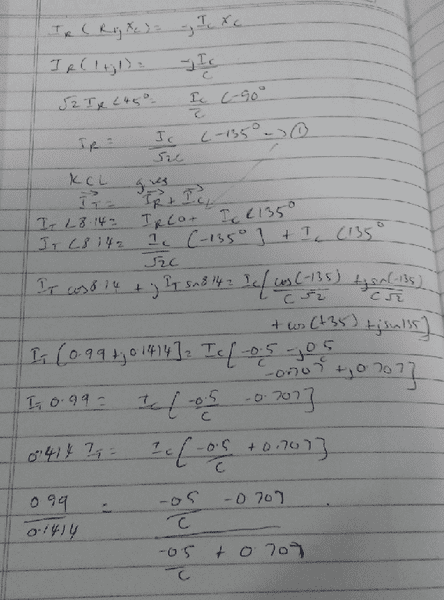 I_R (R+jX_C) = -j I_C X_C
I_R (1+j1) = -j I_C / C
√2 I_R ∠45° = I_C / C ∠-90°
I_R = I_C / √2C ∠-135° → ①
KCL gives
I_T = I_R + I_C
I_T ∠8.14 = I_R ∠0 + I_C ∠135°
I_T ∠8.14 = I_C / √2C [-135°] + I_C ∠135°
I_T cos 8.14 + j I_T sn 8.14 = I_C [ cos(-135) / C√2 + j sn(-135) / C√2
+ cos(135) + j sn 135 ]
I_T [0.99 + j0.1414] = I_C [ -0.5 / C - j0.5 / C
-0.707 + j0.707 ]
I_T 0.99 = I_C [ -0.5 / C - 0.707 ]
0.1414 I_T = I_C [ -0.5 / C + 0.707 ]
0.99 / 0.1414 = -0.5 / C - 0.707
-0.5 / C + 0.707